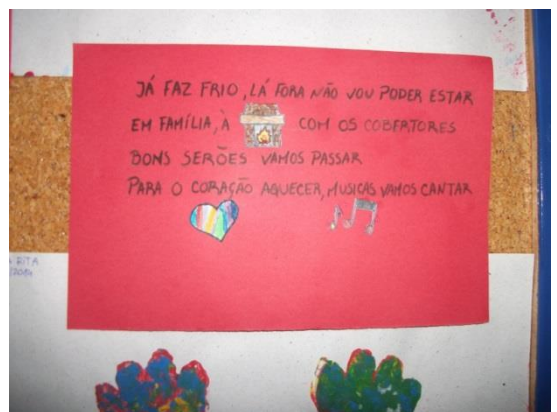 JÁ FAZ FRIO, LÁ FORA NÃO VOU PODER ESTAR
EM FAMÍLIA, À COM OS COBERTORES
BONS SERÕES VAMOS PASSAR
PARA O CORAÇÃO AQUECER, MUSICAS VAMOS CANTAR
RITA